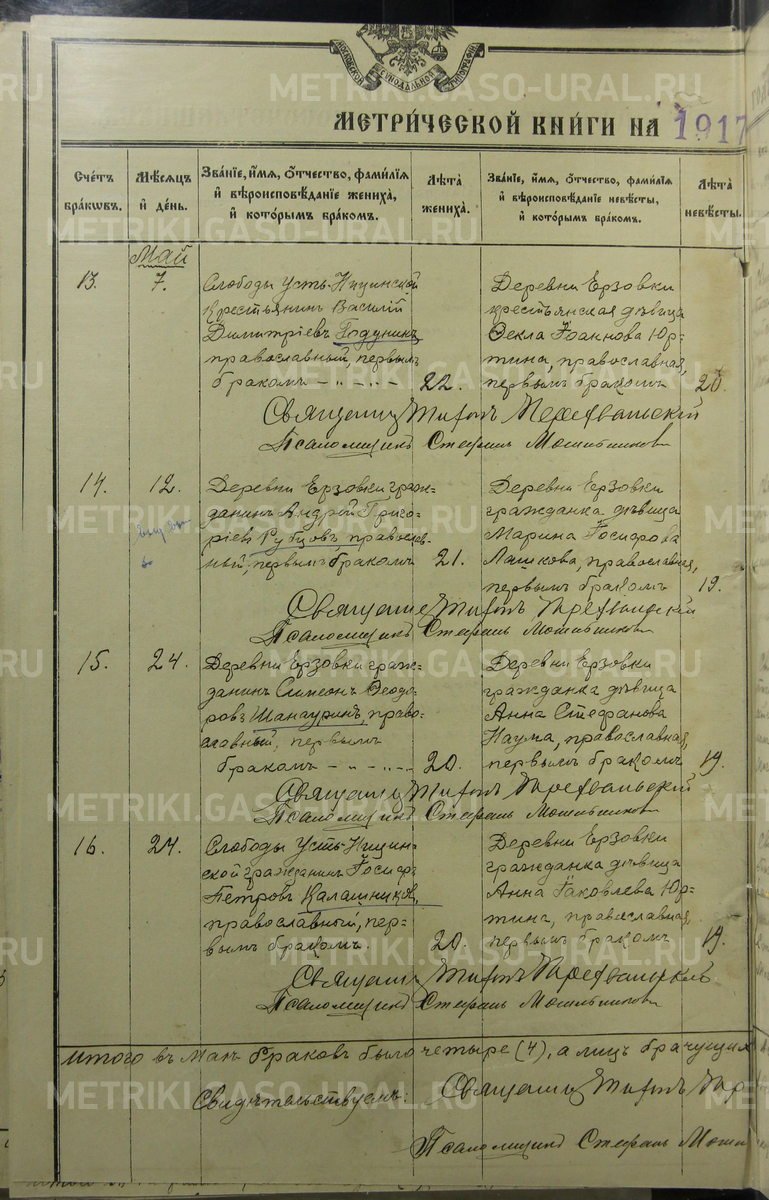 МОСКОВСКОЙ СѴНОДАЛЬНОЙ ТИПОГРАФІИ
МЕТРИ́ЧЕСКОЙ КНИ́ГИ НА 1917
Сче́тъ бра́кѡвъ.
Мѣ́сяцъ и҆ де́нь.
Зва́нїе, и҆́мя, ѻ҆́тчество, фами́лїя и҆ вѣроисповѣ́данїе жениха̀, и҆ кото́рымъ бра́комъ.
Лѣ́та жениха̀.
Зва́нїе, и҆́мя, ѻ҆́тчество, фами́лїя и҆ вѣроисповѣ́данїе невѣ́сты, и҆ кото́рымъ бра́комъ.
Лѣ́та невѣ́сты.
Май
13.
7.
Слободы Усть-Ницинской
крестьянинъ Василій
Димитріевъ Годунинъ
православный, первымъ
бракомъ – „ – „ –
22.
Деревни Ерзовки
крестьянская дѣвица
Ѳекла Іоаннова Юр=
тина, православная,
первымъ бракомъ
20.
Священникъ Тихонъ
Псаломщикъ Стефанъ
14.
12.
Деревни Ерзовки граж=
данинъ Андрей Григо=
ріевъ Рубцовъ, православ=
ный, первымъ бракомъ
21.
Деревни Ерзовки
гражданка дѣвица
Марина Іосифова
Лашкова, православная,
первымъ бракомъ
19.
Священникъ Тихонъ
Псаломщикъ Стефанъ
15.
24.
Деревни Ерзовки граж=
данинъ Симеонъ Ѳеодо=
ровъ Шанауринъ, право=
славный, первымъ
бракомъ – „ – „ –
20.
Деревни Ерзовки
гражданка дѣвица
Анна Стефанова
Наума, православная,
первымъ бракомъ
19.
Священникъ Тихонъ
Псаломщикъ Стефанъ
16.
24.
Слободы Усть-Ницин=
ской гражданинъ Іосифъ
Петровъ Калашниковъ,
православный, пер=
вымъ бракомъ.
20.
Деревни Ерзовки
гражданка дѣвица
Анна Іаковлева Юр=
тина, православная,
первымъ бракомъ
19.
Священникъ Тихонъ
Псаломщикъ Стефанъ
Итого въ Маѣ браковъ было четыре (4), а лицъ брачущих
Свидѣтельствуемъ: Священникъ Тихонъ
Псаломщикъ Стефанъ
METRIKI.GASO-URAL.RU